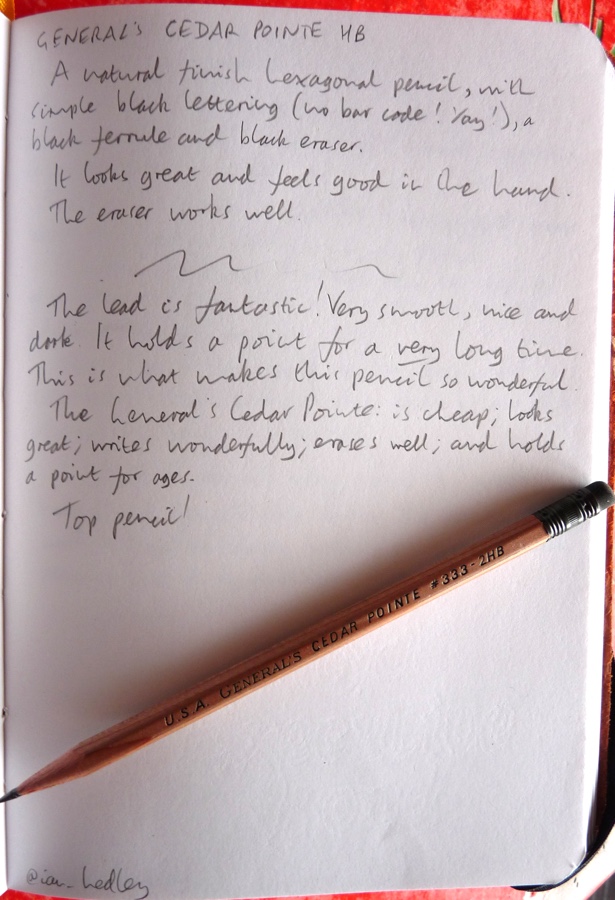 GENERAL'S CEDAR POINTE HB
A natural finish hexagonal pencil, with
simple black lettering (no bar code! Yay!), a
black ferrule and black eraser.
It looks great and feels good in the hand.
The eraser works well.
The lead is fantastic! Very smooth, nice and
dark. It holds a point for a very long time.
This is what makes this pencil so wonderful.
The General's Cedar Pointe: is cheap; looks
great; writes wonderfully; erases well; and holds
a point for ages.
Top pencil!
U.S.A. GENERAL'S CEDAR POINTE #333-2HB
@ian_hedley